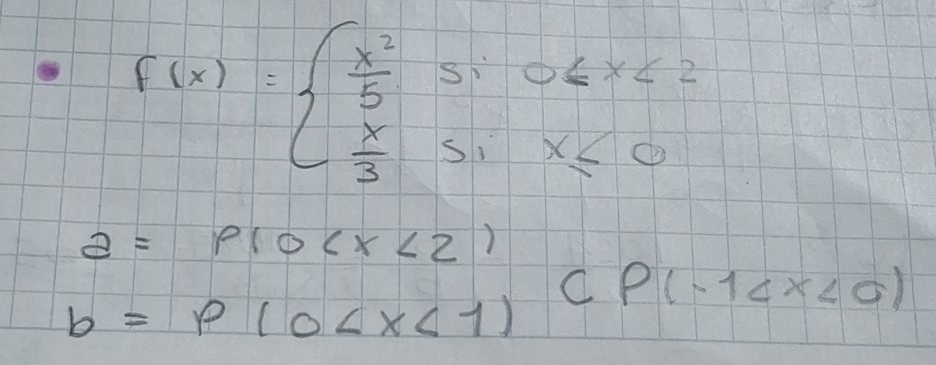 f(x) = { x²/5 si 0≤x<2
x/3 si x≤0
a = P(0<x<2)
b = P(0<x<1)
C P(-1<x<0)